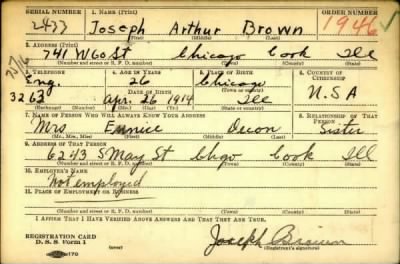 SERIAL NUMBER 1. NAME (Print) ORDER NUMBER
2433 Joseph Arthur Brown 1946
(First) (Middle) (Last)
2. ADDRESS (Print)
741 W 60 St Chicago Cook Ill
(Number and street or R. F. D. number) (Town) (County) (State)
3. TELEPHONE 4. AGE IN YEARS 5. PLACE OF BIRTH 6. COUNTRY OF CITIZENSHIP
Eng. 26 Chicago
DATE OF BIRTH (Town or county)
3263 Apr. 26 1914 Ill U.S.A
(Exchange) (Number) (Mo.) (Day) (Yr.) (State or country)
7. NAME OF PERSON WHO WILL ALWAYS KNOW YOUR ADDRESS 8. RELATIONSHIP OF THAT PERSON
Mrs Sister
(Mr., Mrs., Miss) (First) (Middle) (Last)
9. ADDRESS OF THAT PERSON
6213 S May St Chgo Cook Ill
(Number and street or R. F. D. number) (Town) (County) (State)
10. EMPLOYER'S NAME
Not employed
11. PLACE OF EMPLOYMENT OR BUSINESS
(Number and street or R. F. D. number) (Town) (County) (State)
I AFFIRM THAT I HAVE VERIFIED ABOVE ANSWERS AND THAT THEY ARE TRUE.
REGISTRATION CARD
D. S. S. Form 1 Joseph Brown
(Registrant's signature)